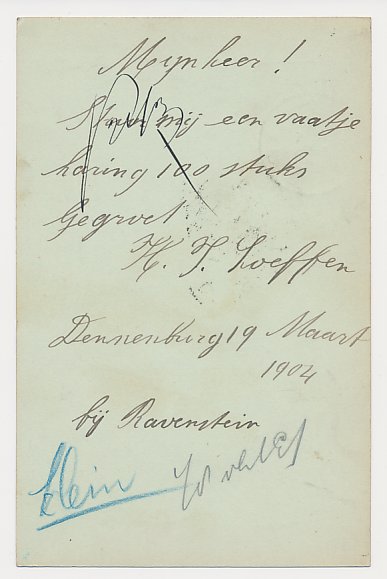 Mynheer!
Stuur mij een vaatje
haring 100 stuks
Gegroet
H. J. Loeffen
Dennenburg 19 Maart
1904
bij Ravenstein
klein